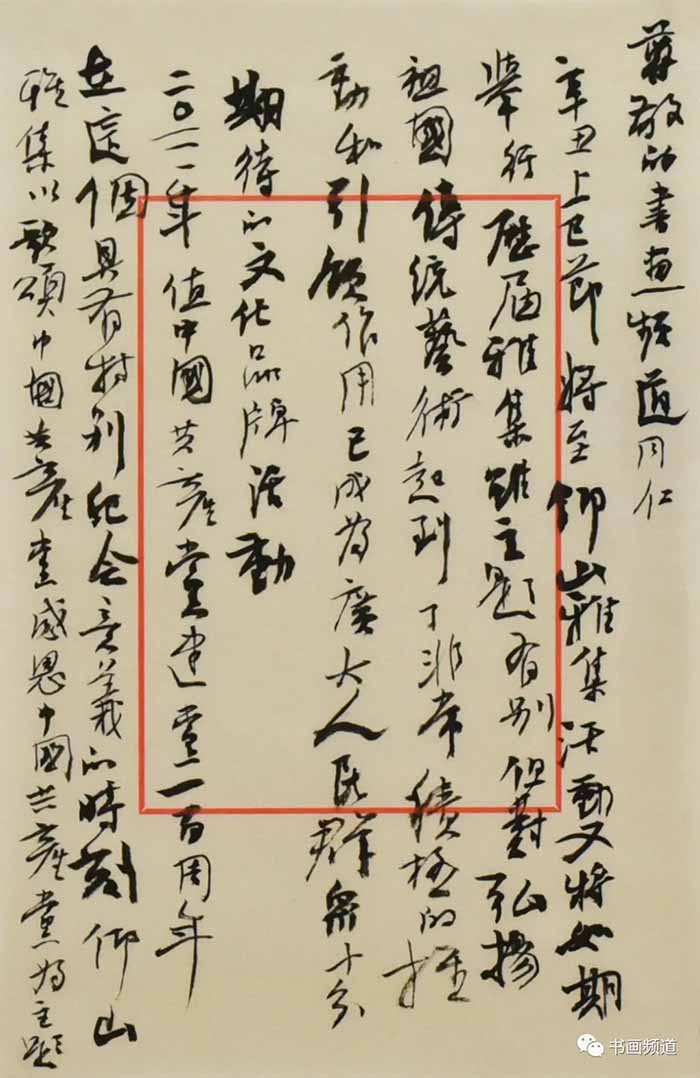 尊敬的書畫頻道同仁
辛丑上巳節將至仰山雅集活動又將如期
舉行歷屆雅集雖主題有别但對弘揚
祖國傳統藝術起到了非常積極的推
動和引領作用已成為廣大人民群眾十分
期待的文化品牌活動
二〇二一年值中國共產黨建黨一百周年
在這個具有特别紀念意義的時刻仰山
雅集以歌頌中國共產黨感恩中國共產黨為主題
书画频道